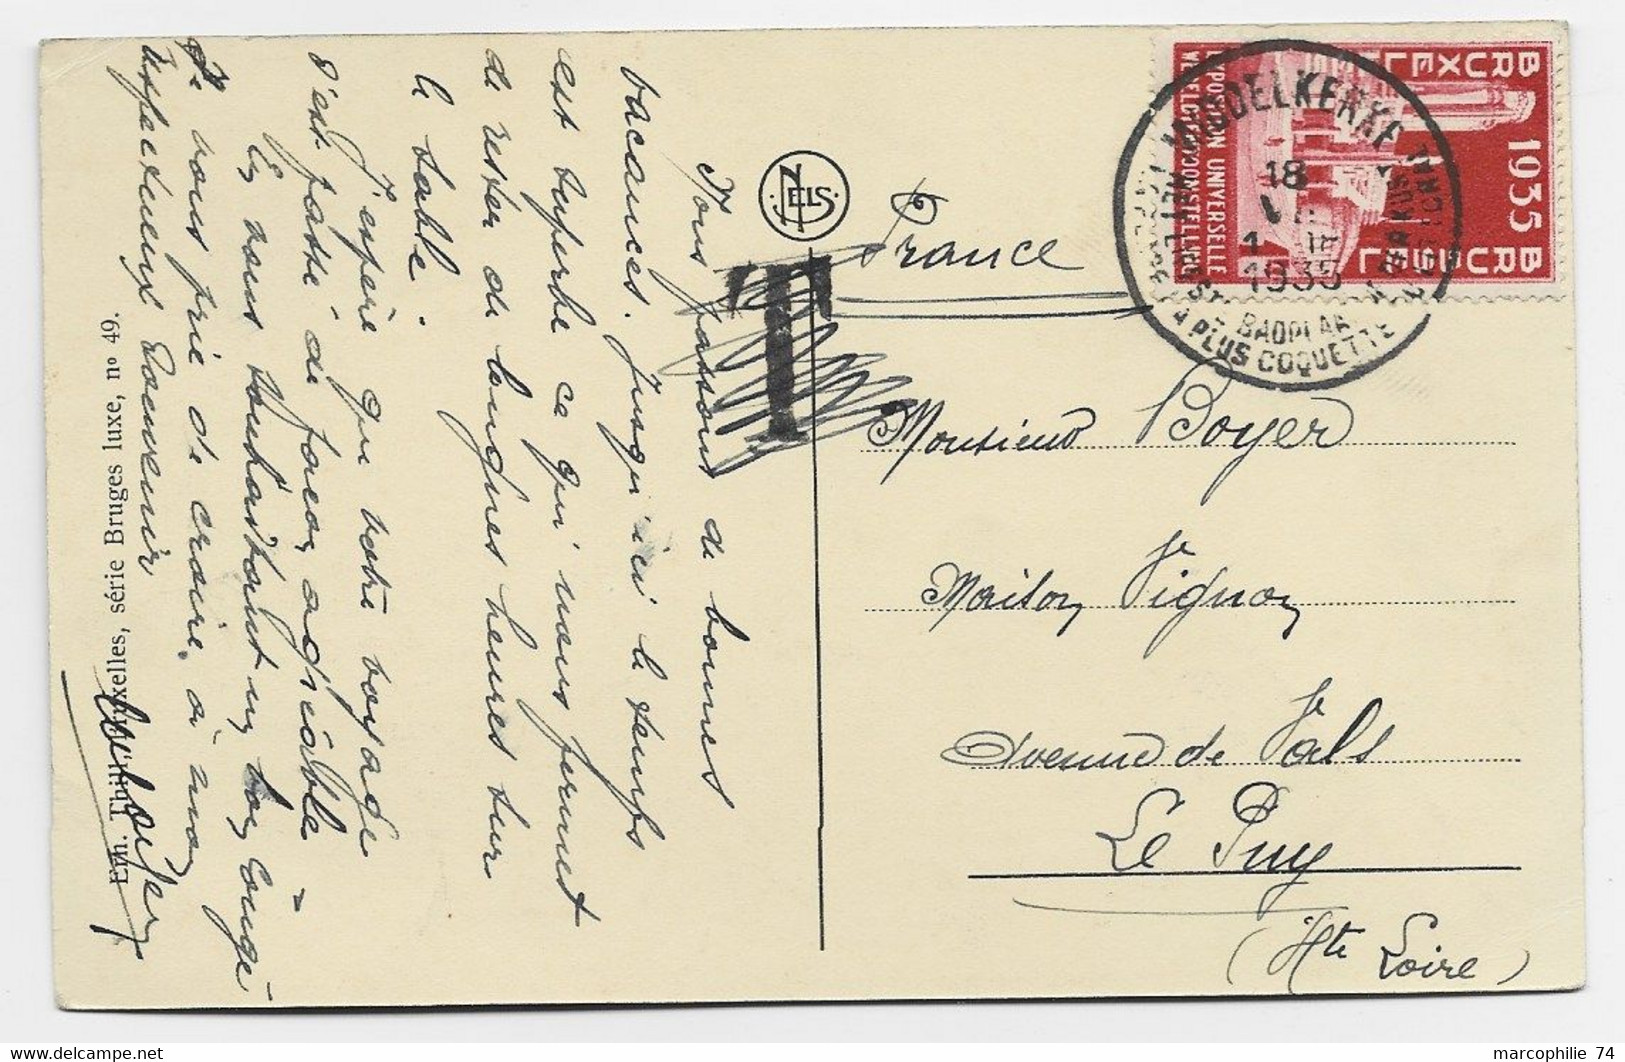 Nous passons de bonnes
vacances. Jusqu'ici le temps
est superbe ce qui nous permet
de rester de longues heures sur
le sable.
J'espère que votre voyage
s'est passé de façon agréable
En vous souhaitant un bon congé
Je vous prie de croire, à mon
respectueux souvenir
Em. Thill, Bruxelles, série Bruges luxe, nº 49.
NELS
T
France
Monsieur Boyer
Maison Vignon
Avenue de Vals
Le Puy
(Hte Loire)
BRUXELLES 1935 BRUSSEL
EXPOSITION UNIVERSELLE
WERELDTENTOONSTELLING
MIDDELKERKE
18
1935
BADPLAATS
LA PLUS COQUETTE
marcophilie 74